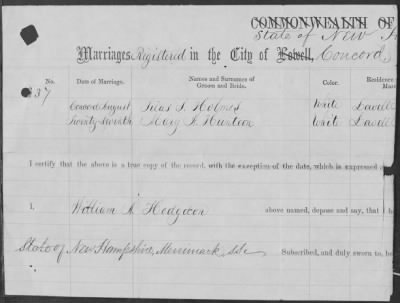 COMMONWEALTH OF
State of New
Marriages Registered in the City of Lowell, Concord
No.
Date of Marriage.
Names and Surnames of Groom and Bride.
Color.
Residence
37
Concord August
Silas S. Holmes
White
Twenty-Seventh
Mary A. Hunton
White
I certify that the above is a true copy of the record, with the exception of the date, which is expressed
I, William A. Hodgdon above named, depose and say, that I
State of New Hampshire, Merrimack SS.
Subscribed, and duly sworn to, be